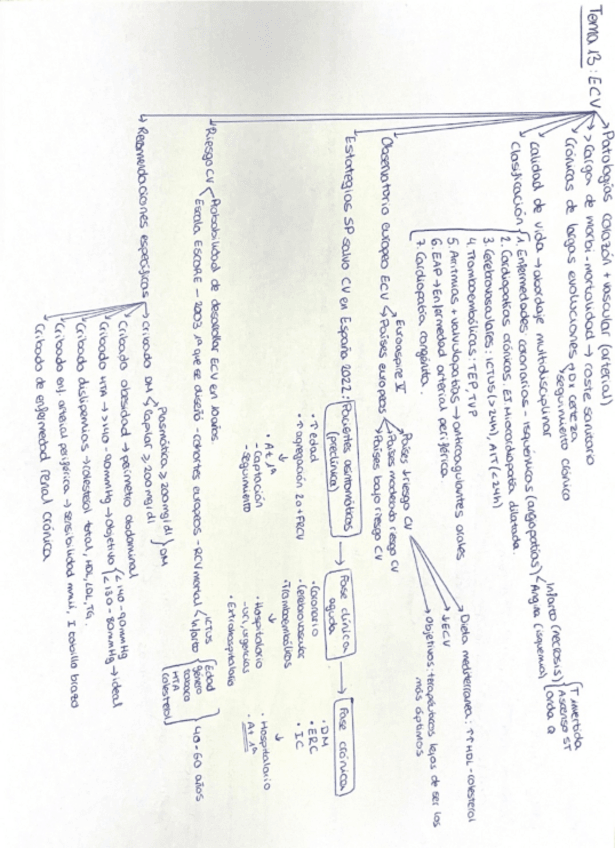 Tema 13: ECV
Patologías corazón + vascular (arterial).
> Carga de morbi-mortalidad → coste sanitario
Crónicas de largas evoluciones
Dx certeza
seguimiento clínico
Calidad de vida → abordaje multidisciplinar
Clasificación
1. Enfermedades coronarias - isquémicas (angiopatías)
Infarto (necrosis)
T invertida
Ascenso ST
Onda Q
Angina (isquemia)
2. Cardiopatías crónicas. EJ Miocardiopatía dilatada.
3. Cerebrovasculares: ICTUS (>24h), AIT (<24h)
4. Tromboembólicas: TEP, TVP
5. Arritmias + valvulopatías → anticoagulantes orales
6. EAP → Enfermedad arterial periférica.
7. Cardiopatía congénita.
Observatorio europeo ECV
Euroaspire V
Países europeos
Países ↓ riesgo CV
Países moderado riesgo CV
Países bajo riesgo CV
Dieta mediterránea: ↑↑ HDL-colesterol
↓ ECV
Objetivos: terapéuticos lejos de ser los
más óptimos
Estrategias SP salud CV en España 2022:
Pacientes asintomáticos
(preclínica)
→
Fase clínica
aguda
→
Fase crónica
· ↑ edad
· ↑ agregación 20 + FRCV
↓
· At 1ª
- Captación
- Seguimiento
· Coronario
· Cerebrovascular
· Tromboembólicas
↓
· Hospitalario
- UCI, urgencias
· Extrahospitalario
· DM
· ERC
· IC
↓
· Hospitalario
· At 1ª
Riesgo CV
Probabilidad de desarrollar ECV en 10 años
Escala ESCORE - 2003 1ª que se diseñó - cohortes europeos - RCV mortal
ICTUS
Infarto
Edad
género
tabaco
HTA
colesterol
40 - 60 años
Recomendaciones específicas
Cribado DM
Plasmática ≥ 200 mg/dl
Capilar ≥ 200 mg/dl
DM
Cribado obesidad → perímetro abdominal
Cribado HTA → > 140 - 90 mmHg → objetivo
< 140 - 90 mmHg
< 130 - 80 mmHg → ideal
Cribado dislipemias → colesterol total, HDL, LDL, TG.
Cribado enf. arterial periférica → sensibilidad MMII, I tobillo brazo
Cribado de enfermedad renal crónica.